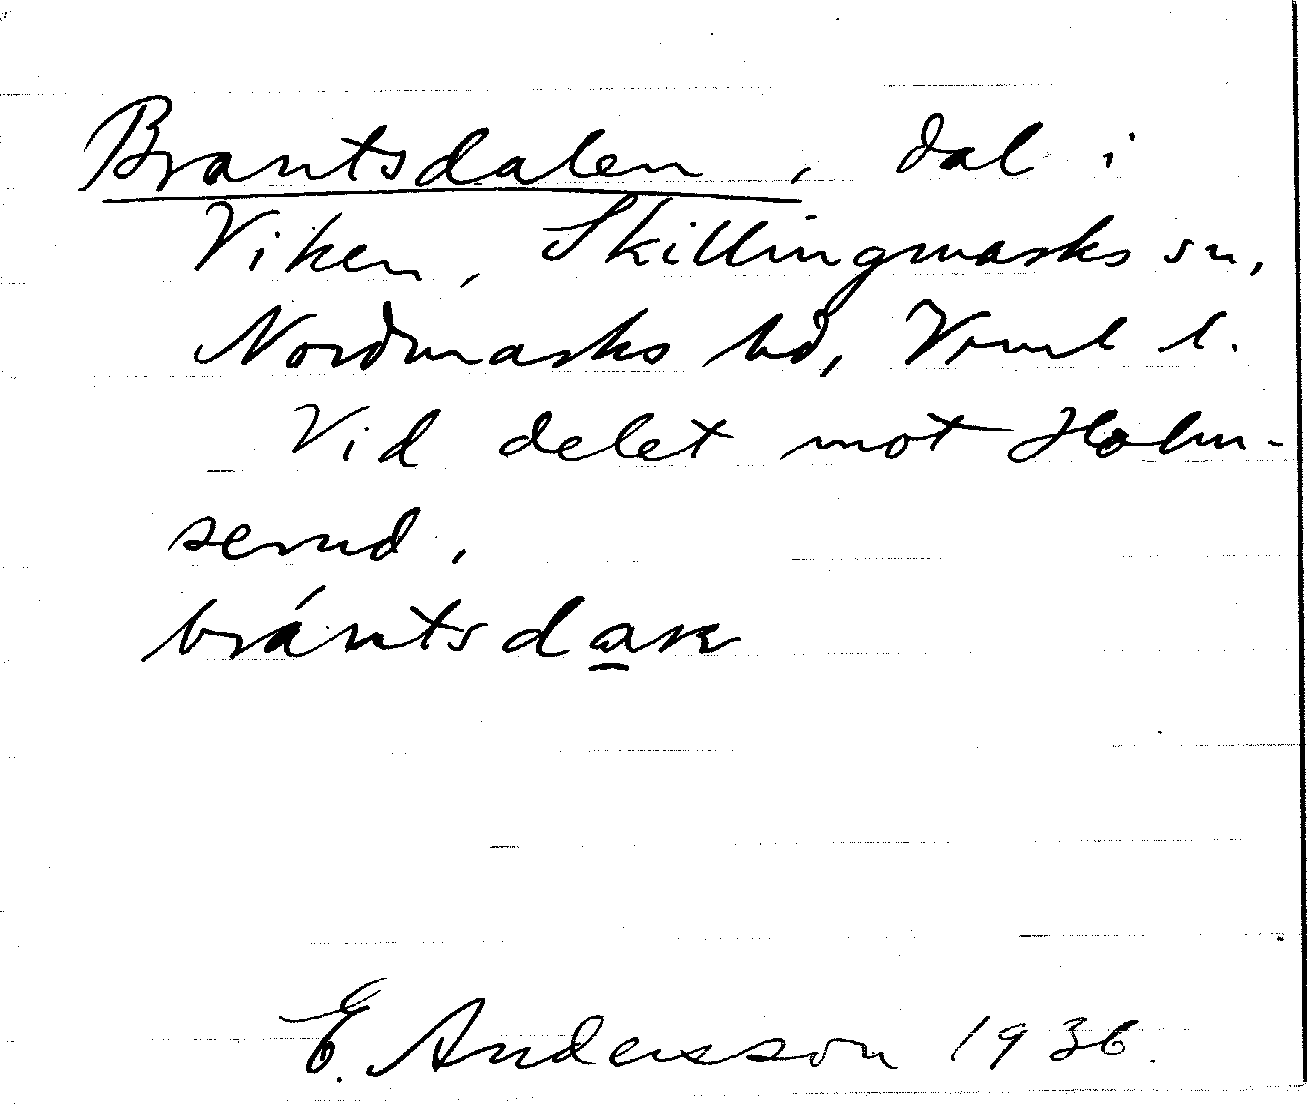 Brantsdalen, dal i
Viken, Skillingmarks sn,
Nordmarks hd, Vrml l.
Vid delet mot Holm-
serud.
brántsdaɴ
E. Andersson 1936.